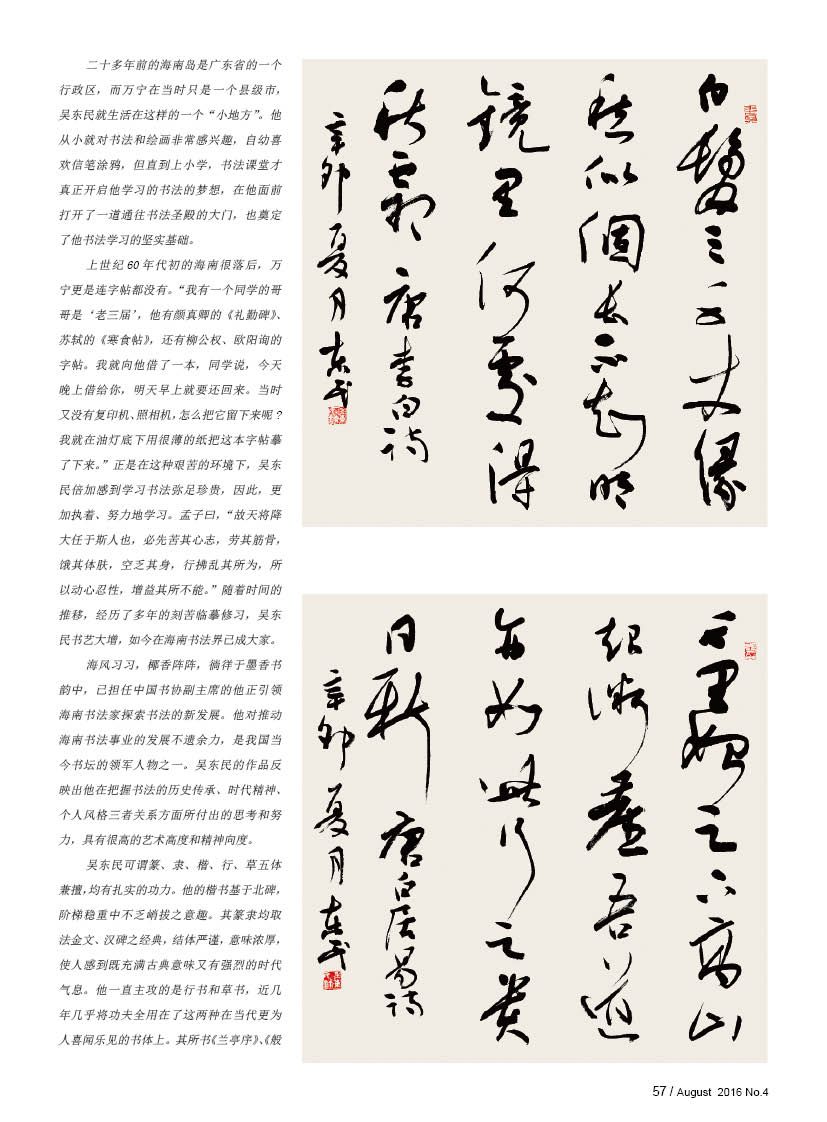 二十多年前的海南岛是广东省的一个
行政区，而万宁在当时只是一个县级市，
吴东民就生活在这样的一个“小地方”。他
从小就对书法和绘画非常感兴趣，自幼喜
欢信笔涂鸦，但直到上小学，书法课堂才
真正开启他学习的书法的梦想，在他面前
打开了一道通往书法圣殿的大门，也奠定
了他书法学习的坚实基础。
上世纪60年代初的海南很落后，万
宁更是连字帖都没有。“我有一个同学的哥
哥是‘老三届’，他有颜真卿的《礼勤碑》、
苏轼的《寒食帖》，还有柳公权、欧阳询的
字帖。我就向他借了一本，同学说，今天
晚上借给你，明天早上就要还回来。当时
又没有复印机、照相机，怎么把它留下来呢？
我就在油灯底下用很薄的纸把这本字帖摹
了下来。”正是在这种艰苦的环境下，吴东
民倍加感到学习书法弥足珍贵，因此，更
加执着、努力地学习。孟子曰，“故天将降
大任于斯人也，必先苦其心志，劳其筋骨，
饿其体肤，空乏其身，行拂乱其所为，所
以动心忍性，增益其所不能。”随着时间的
推移，经历了多年的刻苦临摹修习，吴东
民书艺大增，如今在海南书法界已成大家。
海风习习，椰香阵阵，徜徉于墨香书
韵中，已担任中国书协副主席的他正引领
海南书法家探索书法的新发展。他对推动
海南书法事业的发展不遗余力，是我国当
今书坛的领军人物之一。吴东民的作品反
映出他在把握书法的历史传承、时代精神、
个人风格三者关系方面所付出的思考和努
力，具有很高的艺术高度和精神向度。
吴东民可谓篆、隶、楷、行、草五体
兼擅，均有扎实的功力。他的楷书基于北碑，
阶梯稳重中不乏峭拔之意趣。其篆隶均取
法金文、汉碑之经典，结体严谨，意味浓厚，
使人感到既充满古典意味又有强烈的时代
气息。他一直主攻的是行书和草书，近几
年几乎将功夫全用在了这两种在当代更为
人喜闻乐见的书体上。其所书《兰亭序》、《般
白髮三千丈緣
愁似個長不知明
鏡里何處得
秋霜 唐李白詩
辛卯夏月東民
千里始足下高山
起微塵吾道
亦如此行之貴
日新 唐白居易詩
辛卯夏月東民
57 / August 2016 No.4